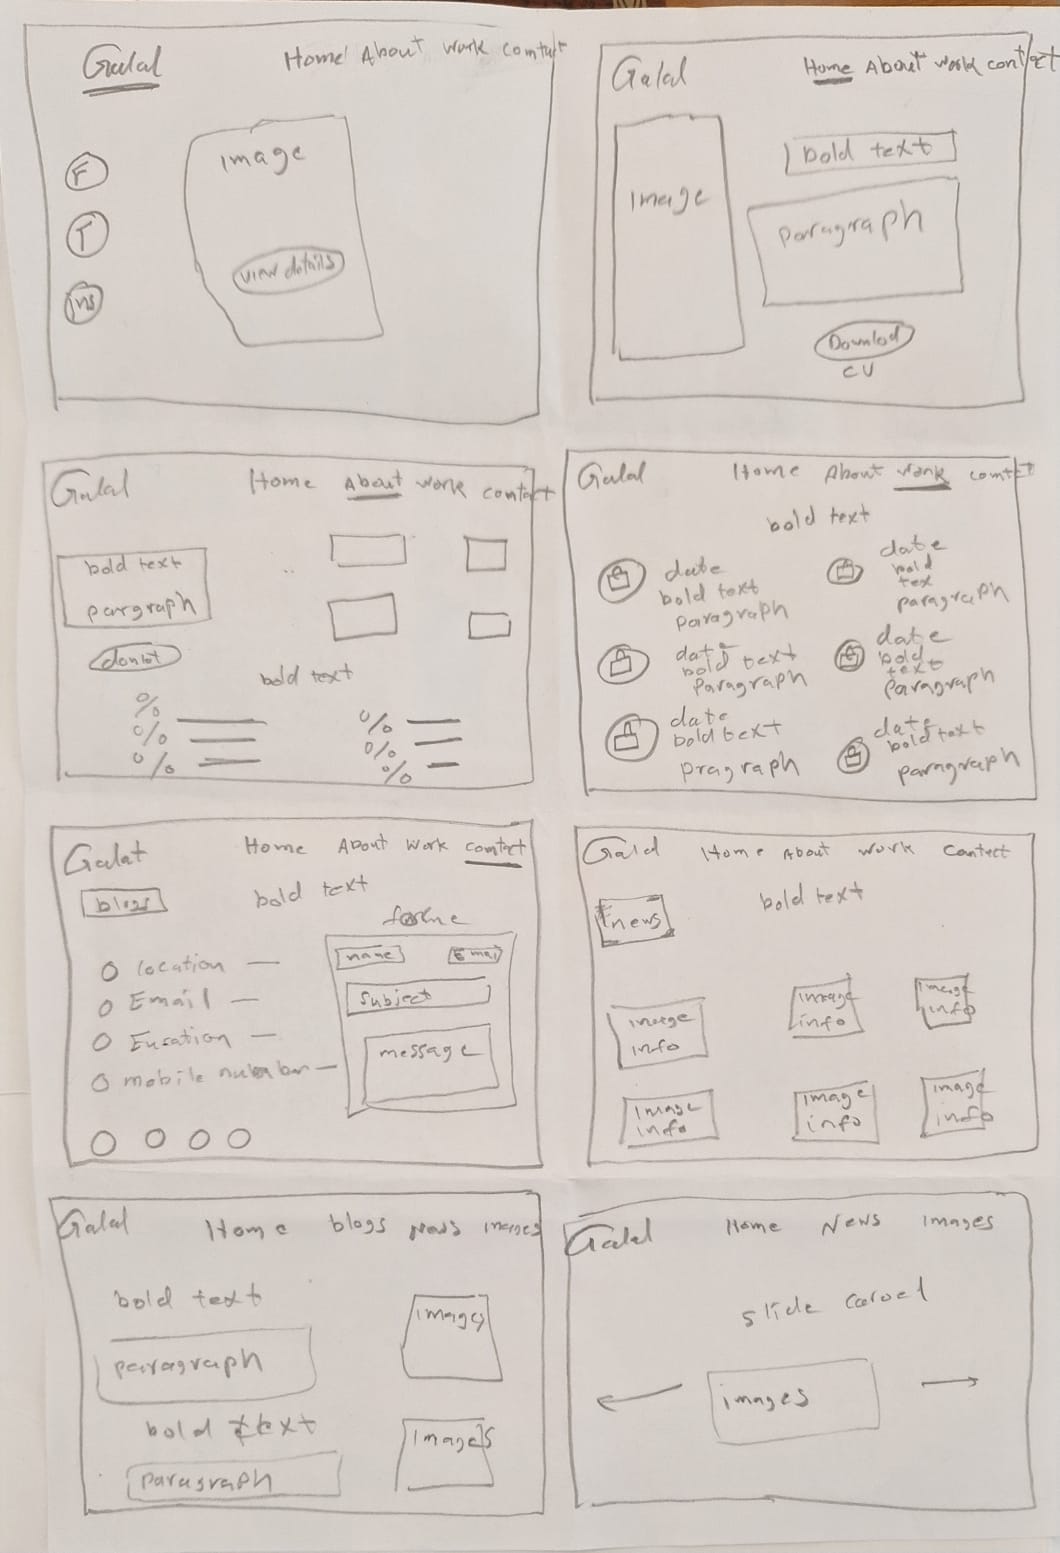 Galal
Home About Work contact
F
T
ins
image
view details
Galal
Home About Work contact
image
bold text
Paragraph
Downlod
CV
Galal
Home About Work contact
bold text
pargraph
bold text
%
%
%
%
%
%
Galal
Home About Work contact
bold text
date
bold text
Paragraph
date
bold
tex
paragraph
date
bold text
Paragraph
date
bold
text
Paragraph
date
bold text
pragraph
date
bold text
paragraph
Galal
Home About Work contact
blogs
bold text
location
Email
mobile number
name
Email
Subject
message
Galal
Home About Work Contact
news
bold text
image
info
image
info
image
info
image
info
image
info
image
info
Galal
Home blogs News images
bold text
paragraph
images
bold text
paragraph
images
Galal
Home News Images
slide
images